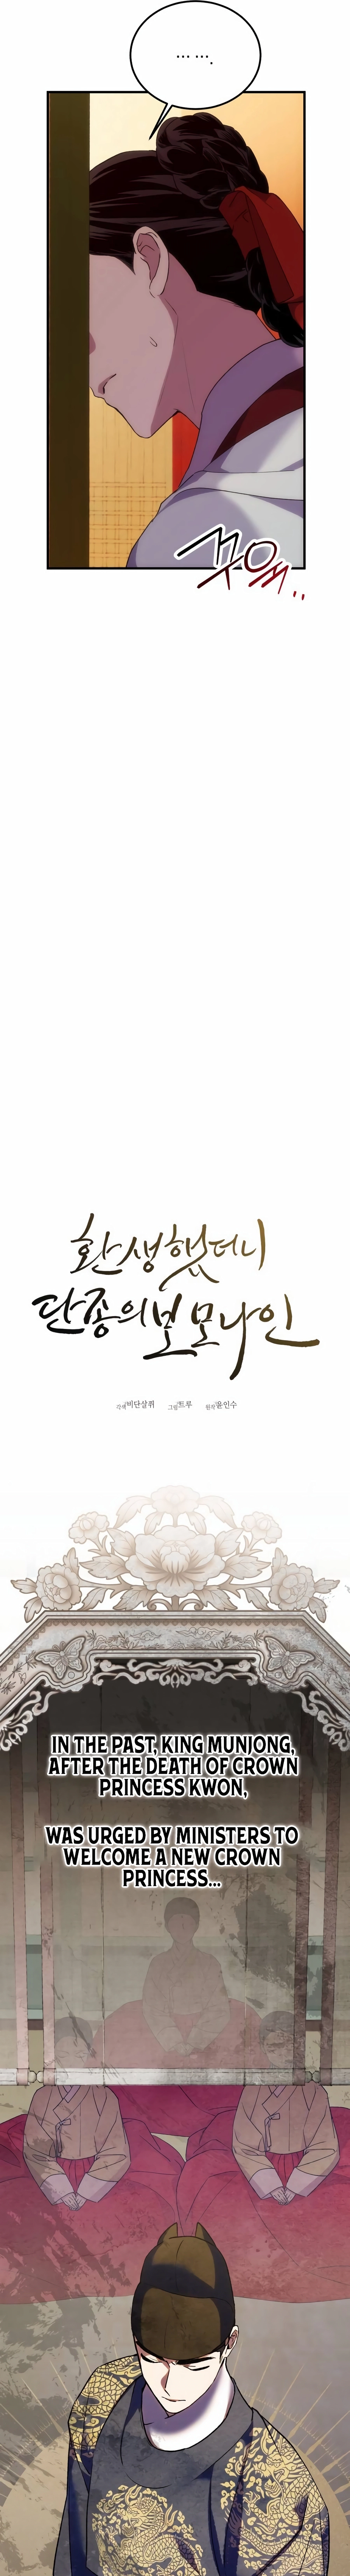 ... ....
꾸욱..
환생했더니
단종의 보모나인
각색 비단살쾨 그림 트루 원작 윤인수
IN THE PAST, KING MUNJONG,
AFTER THE DEATH OF CROWN
PRINCESS KWON,
WAS URGED BY MINISTERS TO
WELCOME A NEW CROWN
PRINCESS...